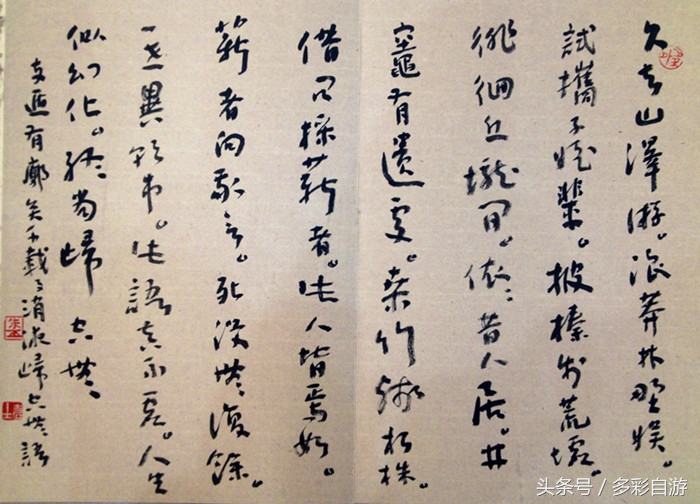 久去山澤游。浪莽林野娛。
試攜子姪輩。披榛步荒墟。
徘徊丘壠間。依々昔人居。井
竈有遺處。桑竹殘朽株。
借問採薪者。此人皆焉如。
薪者向我言。死沒無復餘。
一世異朝市。此語真不虛。人生
似幻化。終當歸 空無
有 千載 歸空無語
头条号 / 多彩自游